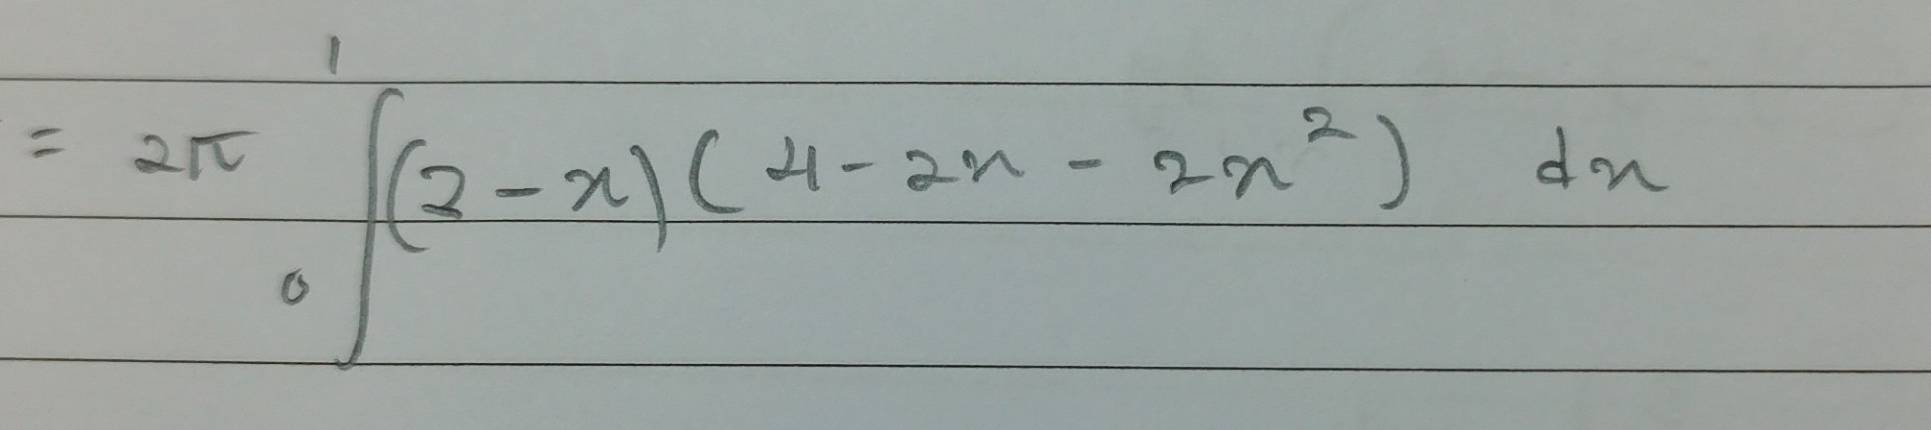 = 2π ∫₀¹ (2 - x) (4 - 2x - 2x²) dx